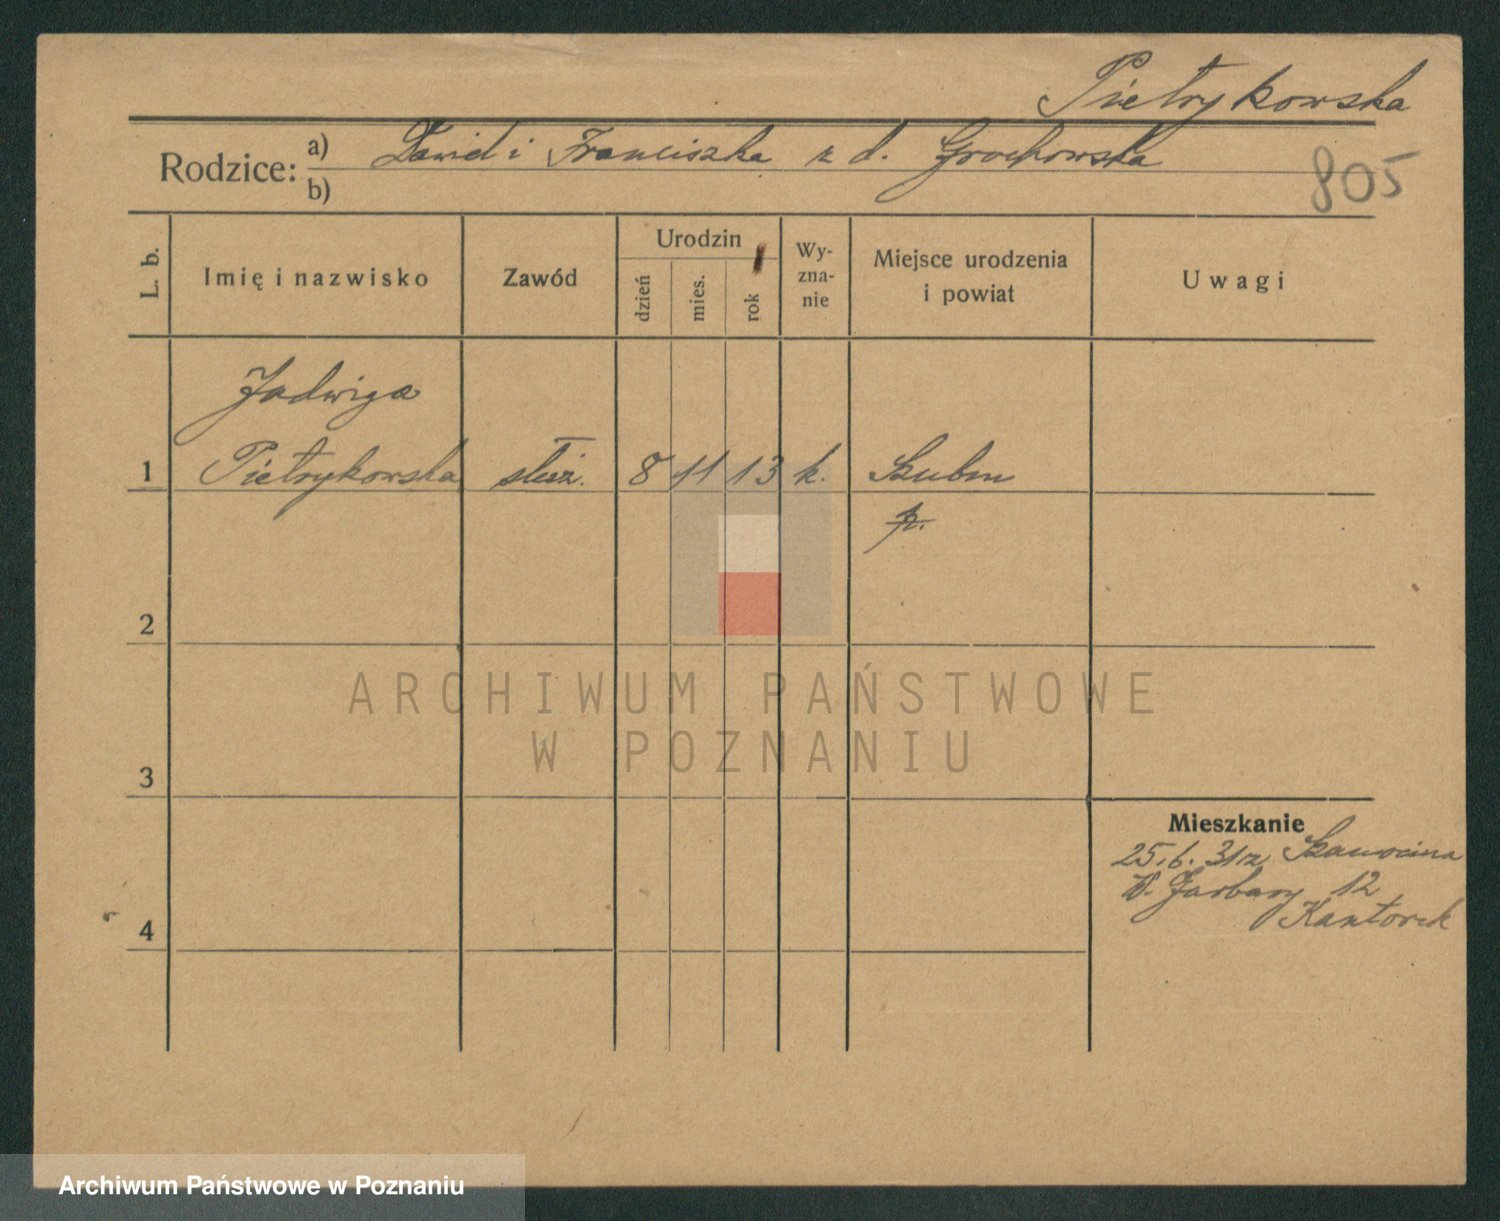 Pietrykowska
Rodzice: a) Dawid i Franciszka z d. Grochowska
b)
805
L. b.
Imię i nazwisko
Zawód
Urodzin
dzień
mies.
rok
Wy-
zna-
nie
Miejsce urodzenia
i powiat
Uwagi
Jadwiga
1 Pietrykowska służ. 8 11 13 k. Szubin
p.
2
ARCHIWUM PAŃSTWOWE
W POZNANIU
3
Mieszkanie
25.6.31 z Szamocina
W. Garbary 12
Kantorek
4
Archiwum Państwowe w Poznaniu